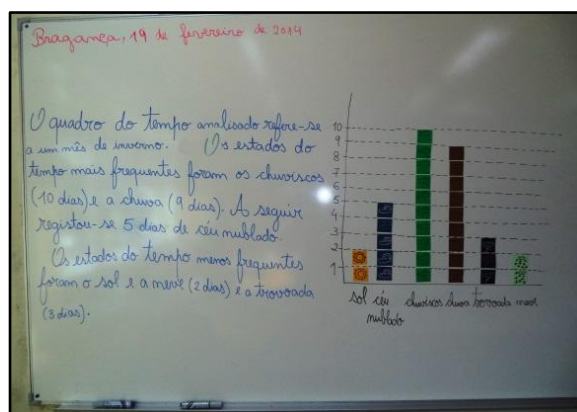 Bragança, 19 de fevereiro de 2014
O quadro do tempo analisado refere-se
a um mês de inverno. Os estados do
tempo mais frequentes foram os chuviscos
(10 dias) e a chuva (9 dias). A seguir
registou-se 5 dias de céu nublado.
Os estados do tempo menos frequentes
foram o sol e a neve (2 dias) e a trovoada
(3 dias).
10
9
8
7
6
5
4
3
2
1
sol céu nublado chuviscos chuva trovoada neve